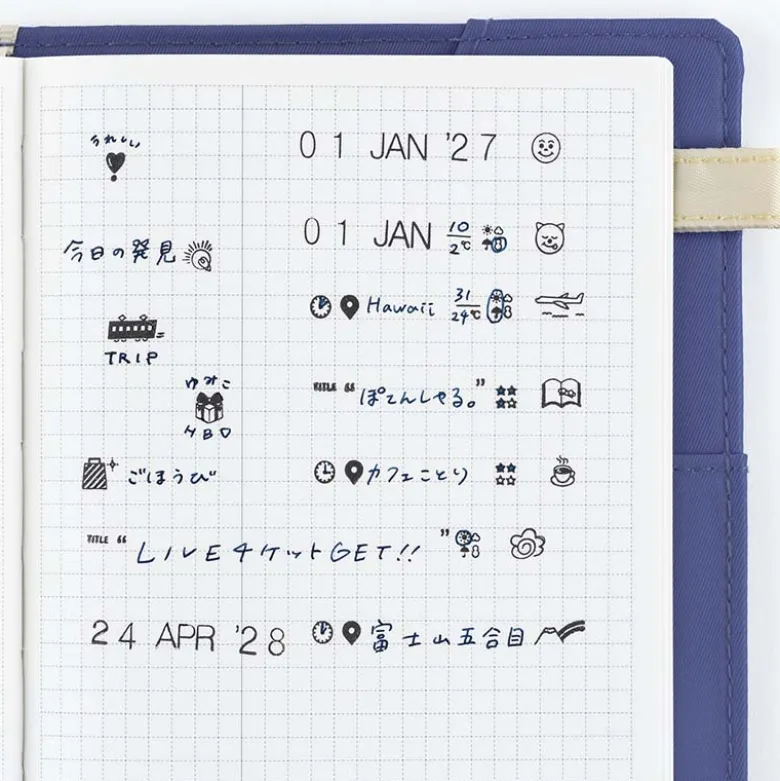 うれしい
01 JAN '27
01 JAN 10 2℃
今日の発見
Hawaii 31 24℃
TRIP
ゆみこ
HBD
TITLE “ぽてんしゃる。”
ごほうび
カフェことり
TITLE “LIVEチケットGET!!”
24 APR '28
富士山五合目